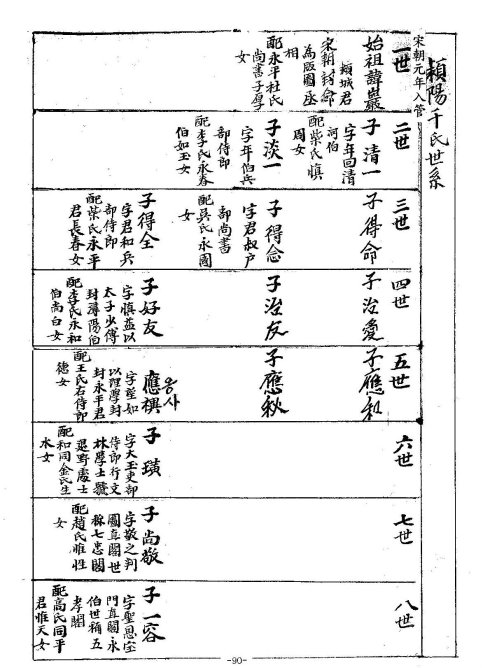 頴陽千氏世系
宋朝元年入管
一世
始祖諱巖
頴城君
宋朝封命
為版圖丞
相
配永平杜氏
尚書子厚
女
二世
子清一
字年回清
河伯
配柴氏慎
周女
子淡一
字年伯兵
部侍郎
配李氏永春
伯如玉女
三世
子得命
子得念
字君叔户
部尚書
配吳氏永國
女
子得全
字君和兵
部侍郎
配柴氏永平
君長春女
四世
子治愛
子治友
子好友
字慎益以
太子少傅
封潯陽伯
配李氏永和
伯尚白女
五世
子應和
子應秋
應禩
응사
字聖如
以理學封
封永平君
配王氏右侍郎
德女
六世
子璜
字大玉吏部
侍郎行文
林學士號
退野處士
配和同金氏生
水女
七世
子尚敬
字敬之判
圖直閣世
稱七忠閣
配趙氏惟性
女
八世
子一容
字聖恩宝
門直閣永
伯世稱五
孝閣
配高氏同平
君惟天女
-90-